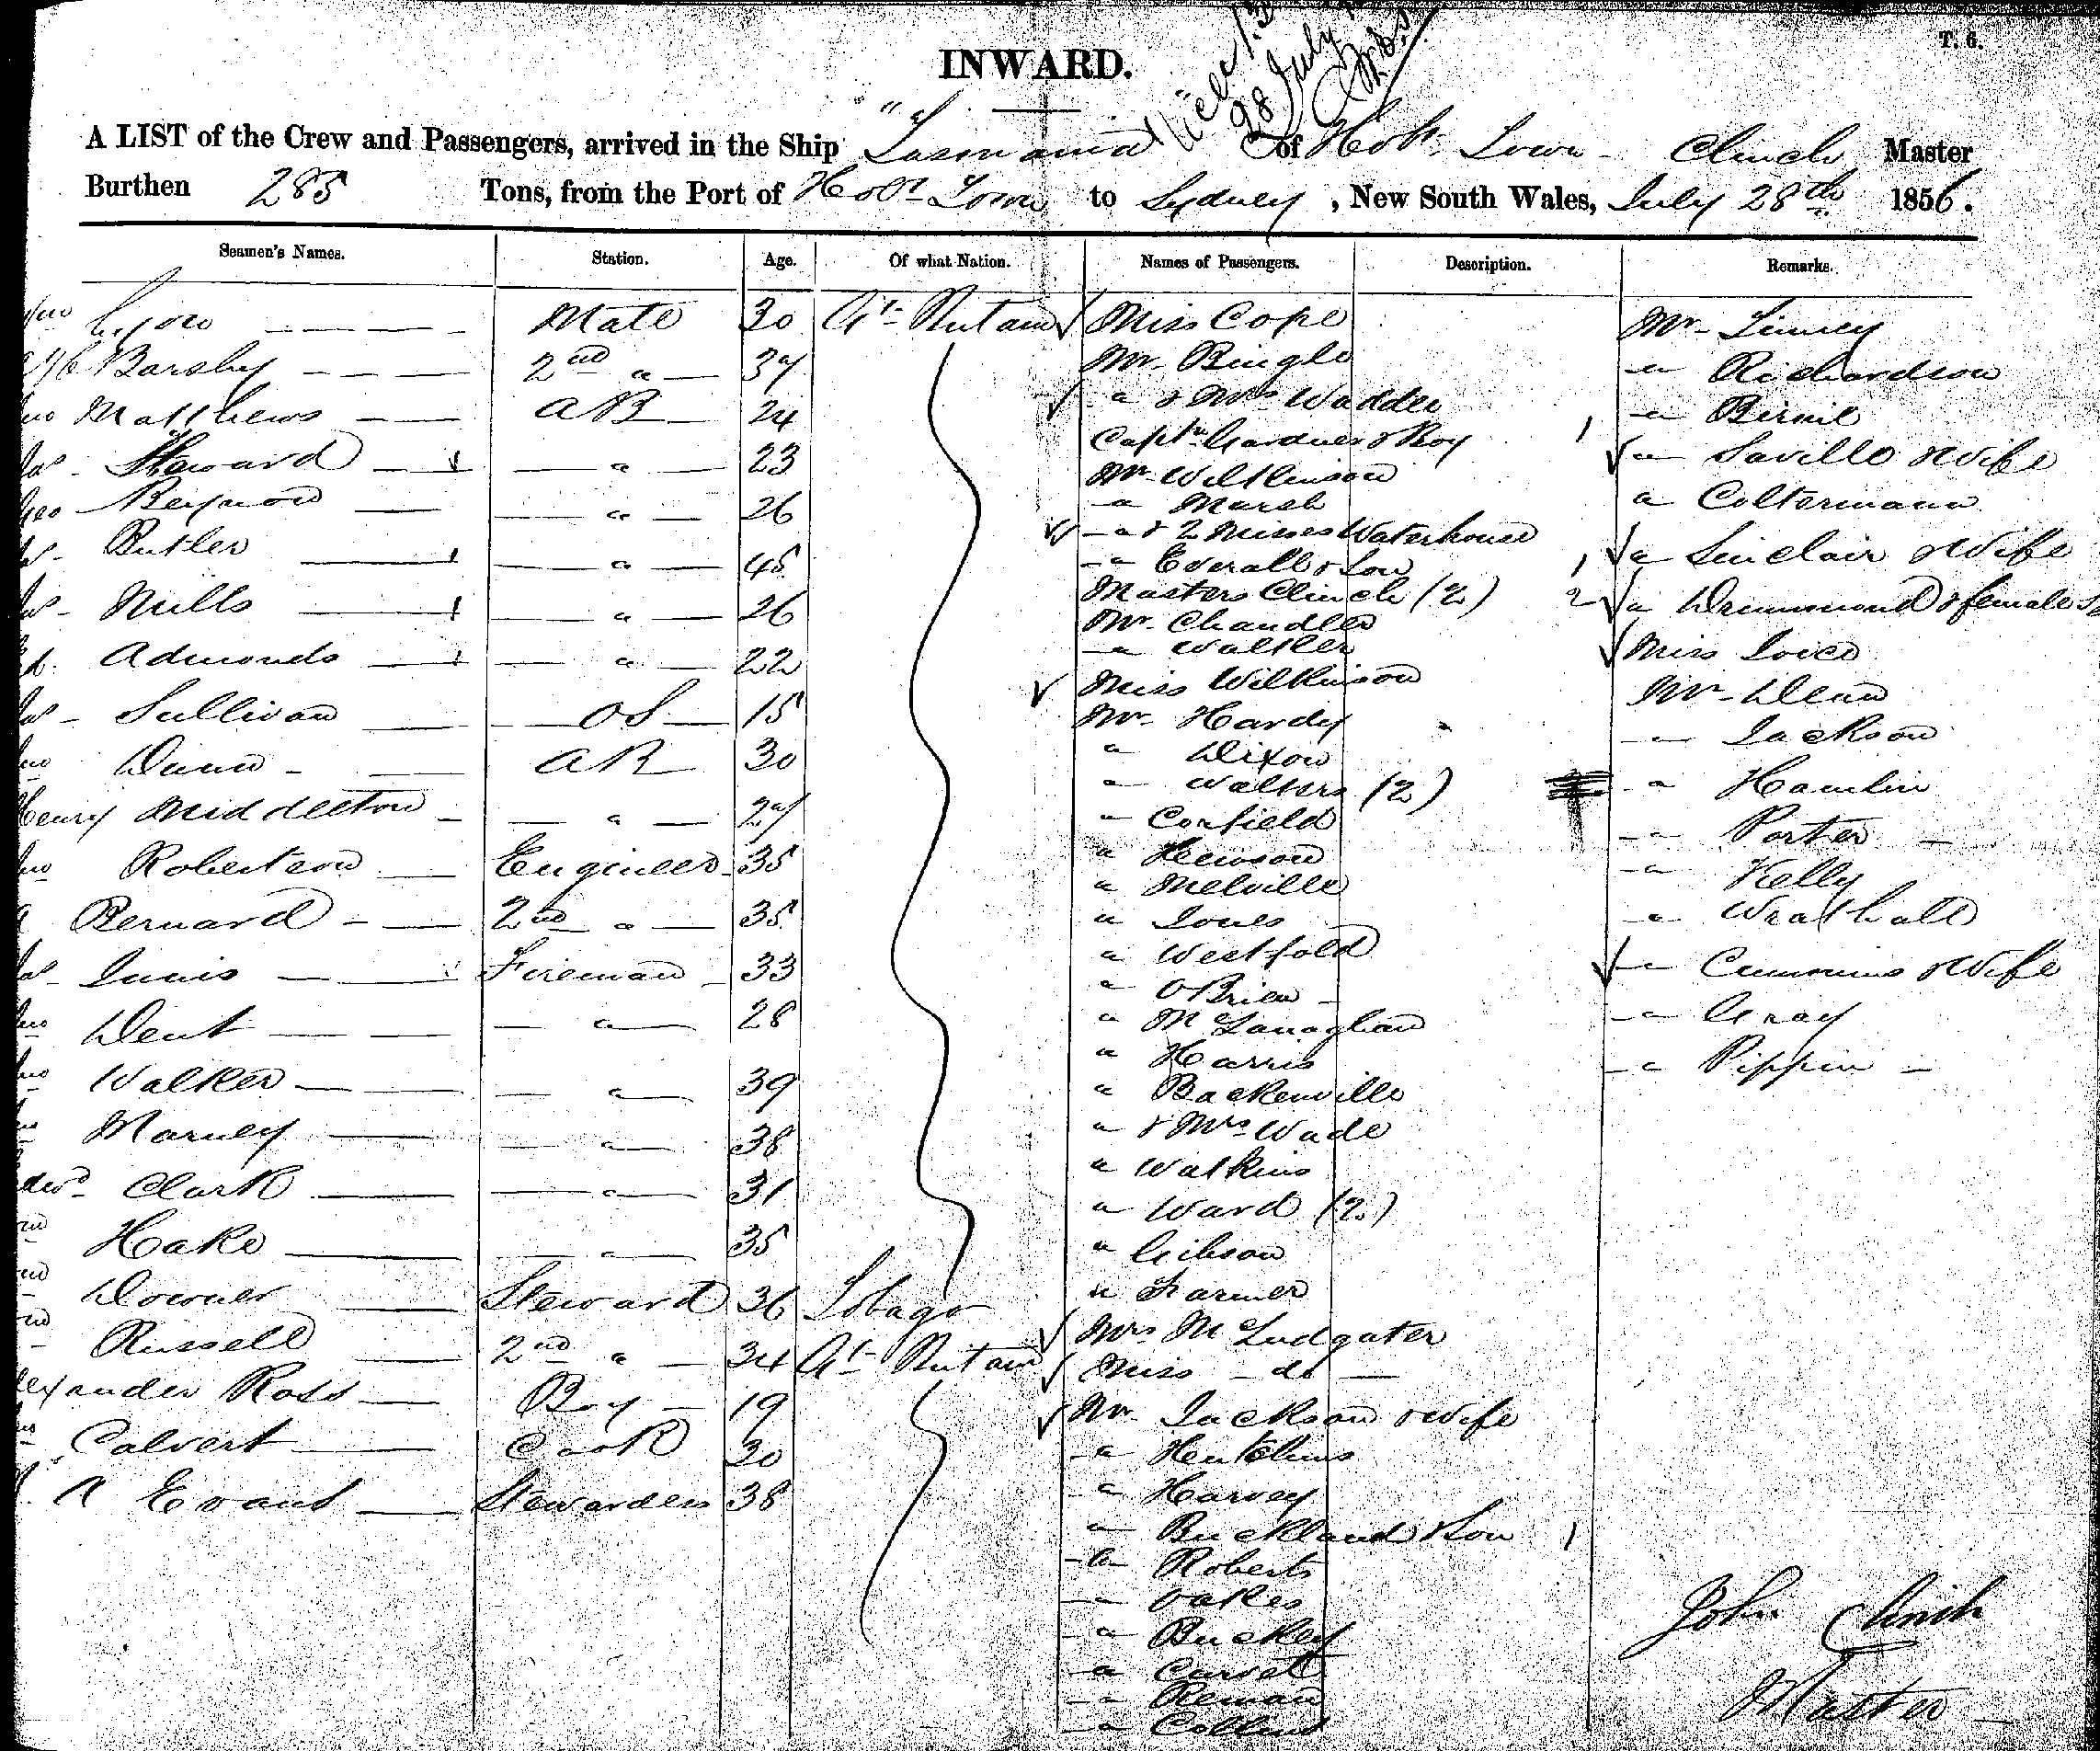 T. 6.
INWARD.
28 July
A LIST of the Crew and Passengers, arrived in the Ship "Tasmania" of Hobt Town Clinch Master
Burthen 285 Tons, from the Port of Hobt Town to Sydney, New South Wales, July 28th 1856.
Seamen's Names. Station. Age. Of what Nation. Names of Passengers. Description. Remarks.
Mate 30 Gt Britain Miss Cope Mr Linney
Barsby 2nd " 37 Mr Bingle " Richardson
Matthews AB 24 " & Mrs Waddee "
Steward " 23 Captn Gardner & Boy " Saville & Wife
Geo Beynon " 26 Mr Wilkinson " Coltermann
Butler " 45 " Marsh " Sinclair & Wife
Mills " 26 " & 2 Misses Waterhouse " Drummond & female
Admonds " 22 " Everall & Son Miss Loice
Sullivan OS 15 Masters Clinch (2) Mr Dean
Dunn AB 30 Mr Chandler " Jackson
Henry Middleton " 27 " Walker " Hamlin
Robertson Engineer 35 Miss Wilkinson " Porter
Bernard 2nd " 35 Mr Hardy " Kelly
Innis Fireman 33 " Dixon " Wrathall
Dent " 28 " Walters (2) " Cummins & Wife
Walker " 39 " Corfield " Gray
Marney " 38 " Hewson " Pippin
Clark " 31 " Melville
Hake " 35 " Jones
Downer Steward 36 Tobago " Westfold
Russell 2nd " 34 Gt Britain " O'Brien
Ross Boy 19 " McLanaghan
Calvert Cook 30 " Harris
A Evans Stewardess 38 " Backenville
" & Mrs Wade
" Watkins
" Ward (2)
" Gibson
" Farmer
Mrs McLudgater
Miss do
Mr Jackson & Wife
" Hutchins
" Harvey
" Buckland & Son 1
" Roberts
" Oakes
" Buckley
"
"
" Collins
John Clinch
Master